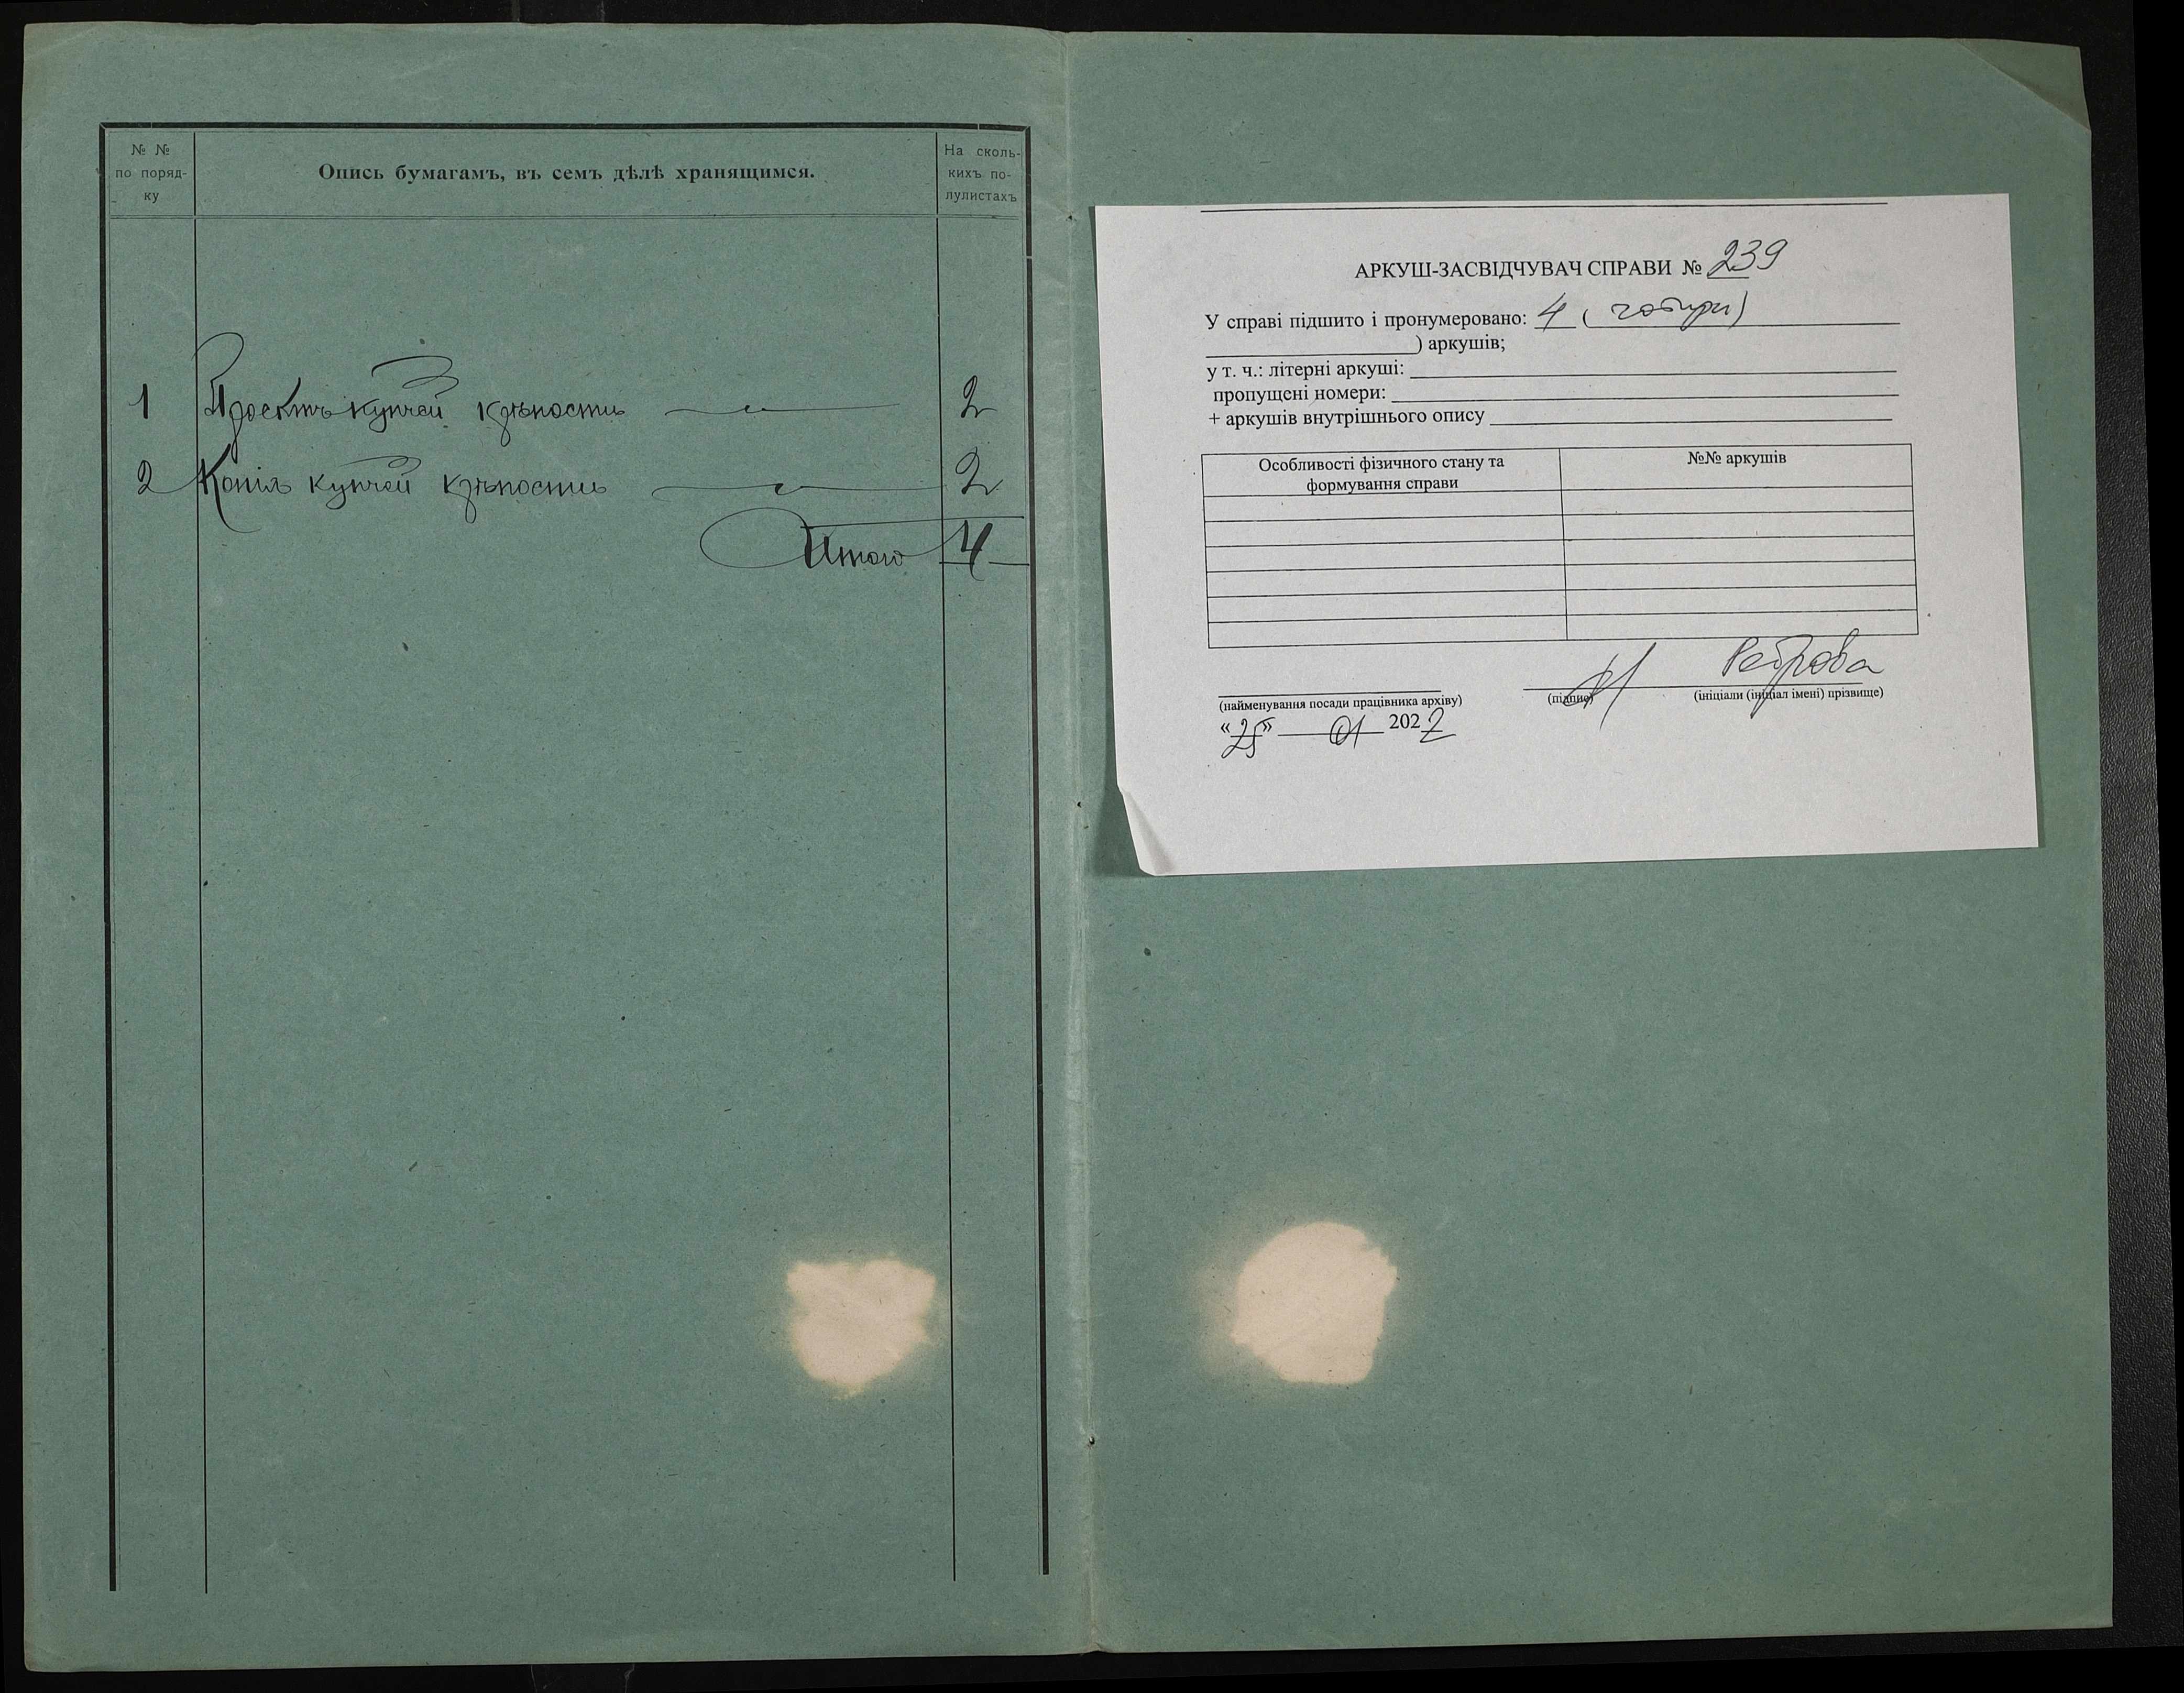 № №
по поряд-
ку
Опись бумагамъ, въ семъ дѣлѣ хранящимся.
На сколь-
кихъ по-
лулистахъ
1 Проектъ купчей крѣпости 2
2 Копія купчей крѣпости 2
Итого 4
АРКУШ-ЗАСВІДЧУВАЧ СПРАВИ № 239
У справі підшито і пронумеровано: 4 ( чотири)
) аркушів;
у т. ч.: літерні аркуші:
пропущені номери:
+ аркушів внутрішнього опису
Особливості фізичного стану та
формування справи
№№ аркушів
(найменування посади працівника архіву)
(підпис)
(ініціали (ініціал імені) прізвище)
«25» 01 2022